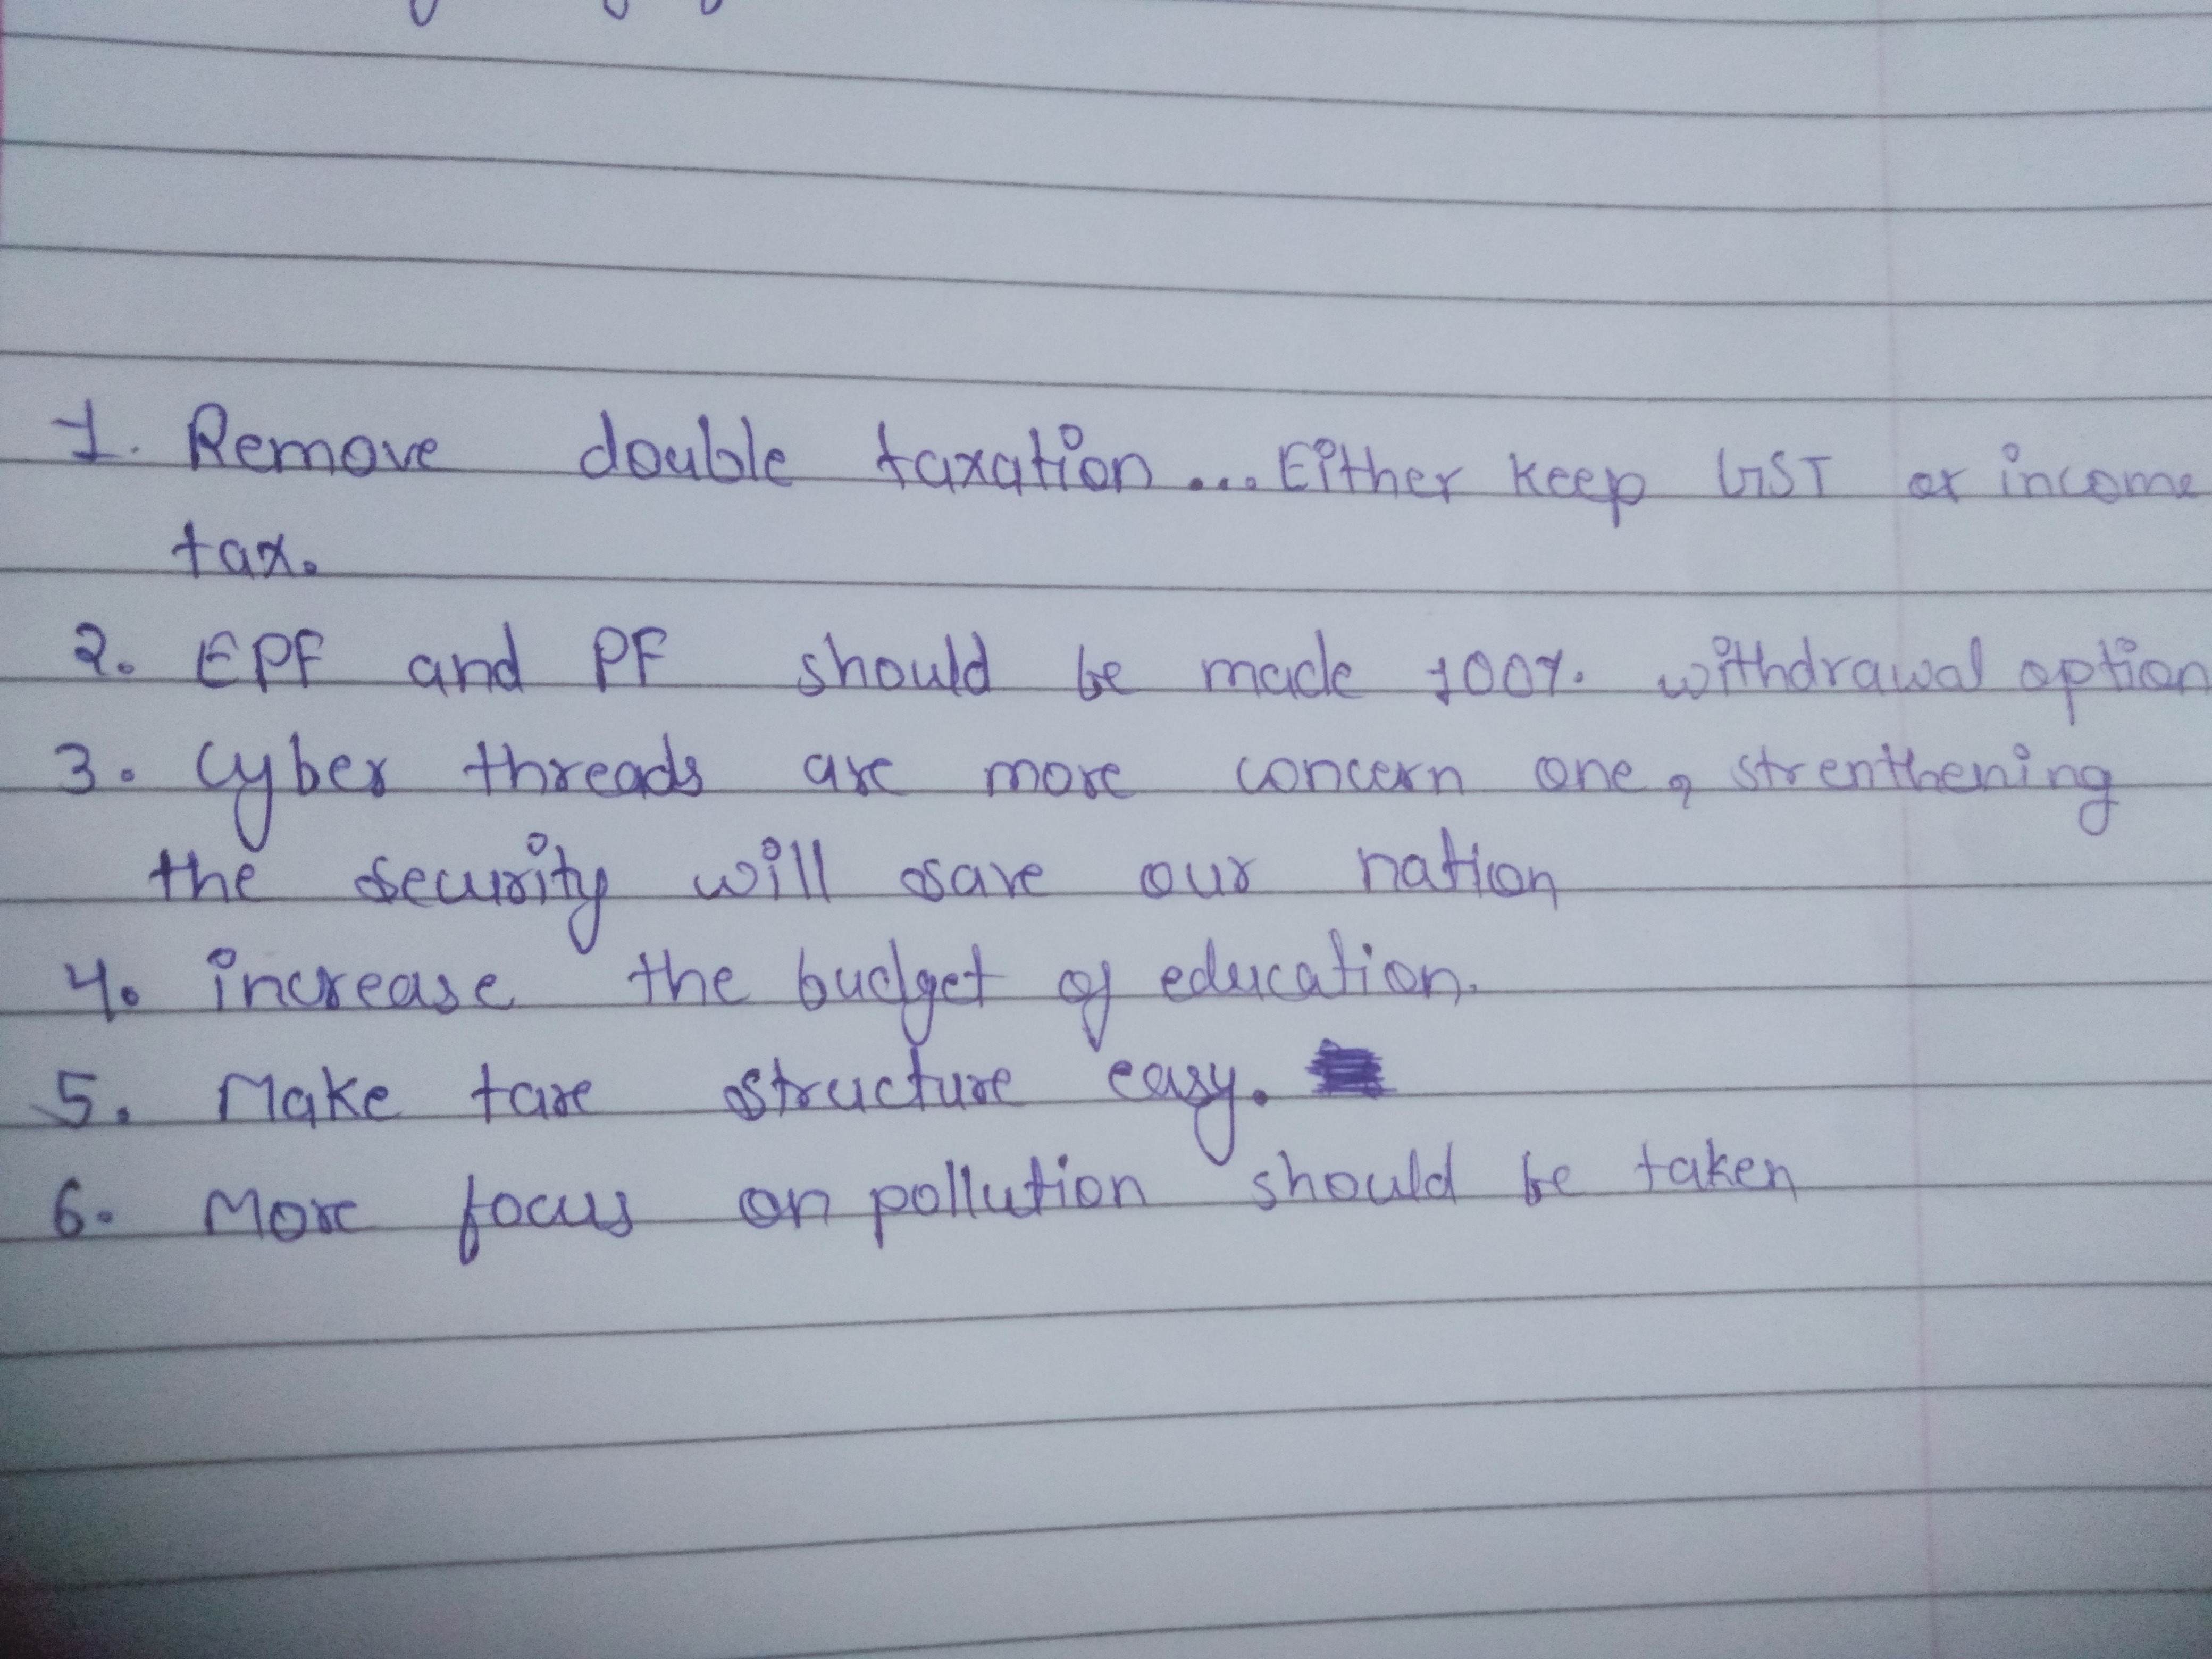 1. Remove double taxation... Either keep GST or income
tax.
2. EPF and PF should be made 100%. withdrawal option
3. Cyber threads are more concern one, strenthening
the security will save our nation
4. increase the budget of education.
5. Make taxe structure easy.
6. More focus on pollution should be taken